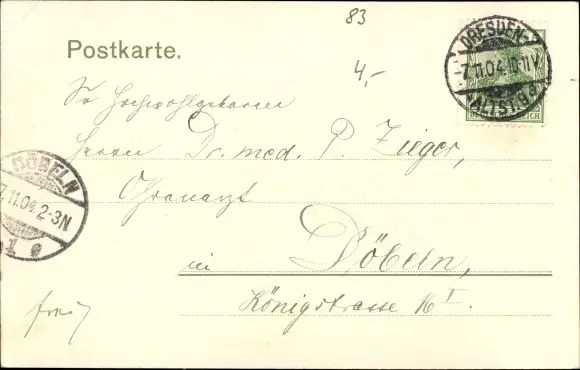 83
Postkarte.
4,-
DRESDEN-
-7.11.04.10-11V.
ALTST. 9
REICH
Sr Hochwohlgeboren
Herrn Dr. med. P. Zieger,
Ohrenarzt
DÖBELN
7.11.04. 2-3N.
in Döbeln,
Königstrasse 16 I.
frei